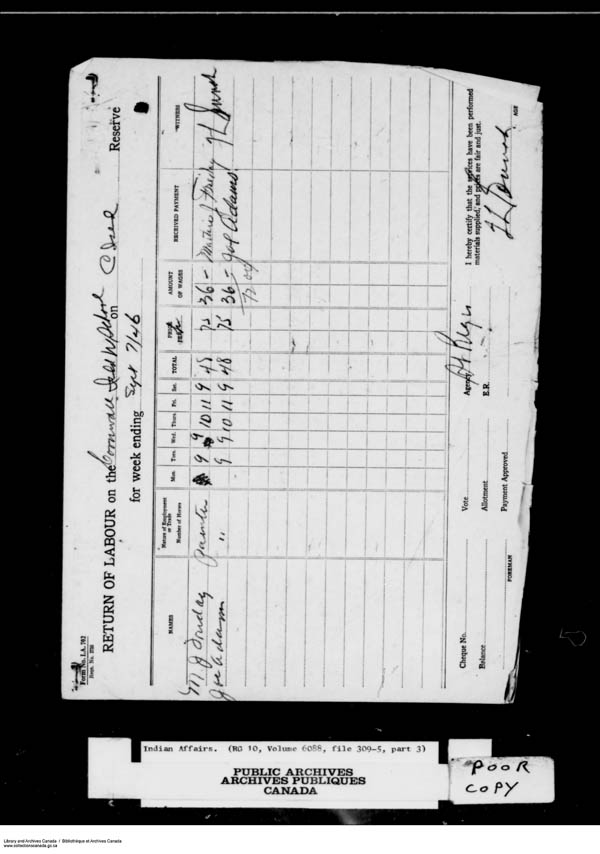 Form No. I.A. 762
RETURN OF LABOUR on the Cornwall Isld School on Reserve
for week ending Sept 7/46
NAMES
Nature of Employment or Trade
Number of Horses
Mon. Tues. Wed. Thurs. Fri. Sat. TOTAL
AMOUNT OF WAGES
RECEIVED PAYMENT
WITNESS
M J Friday Painter 9 9 10 11 9 75 36 - Friday
Joe Adams " 9 9 10 11 9 48 75 36 - Joe Adams
72 00
Cheque No.
Vote
Agency St Regis
I hereby certify that the services have been performed
materials supplied, and prices are fair and just.
Balance
Allotment
E.R.
Payment Approved
FOREMAN
Indian Affairs. (RG 10, Volume 6088, file 309-5, part 3)
PUBLIC ARCHIVES
ARCHIVES PUBLIQUES
CANADA
POOR
COPY
Library and Archives Canada / Bibliothèque et Archives Canada
www.collectionscanada.gc.ca